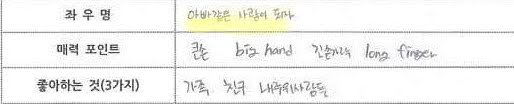 좌 우 명 아빠같은 사람이 되자
매력 포인트 큰손 big hand 긴손가락 long finger
좋아하는 것(3가지) 가족 친구 내주위사람들